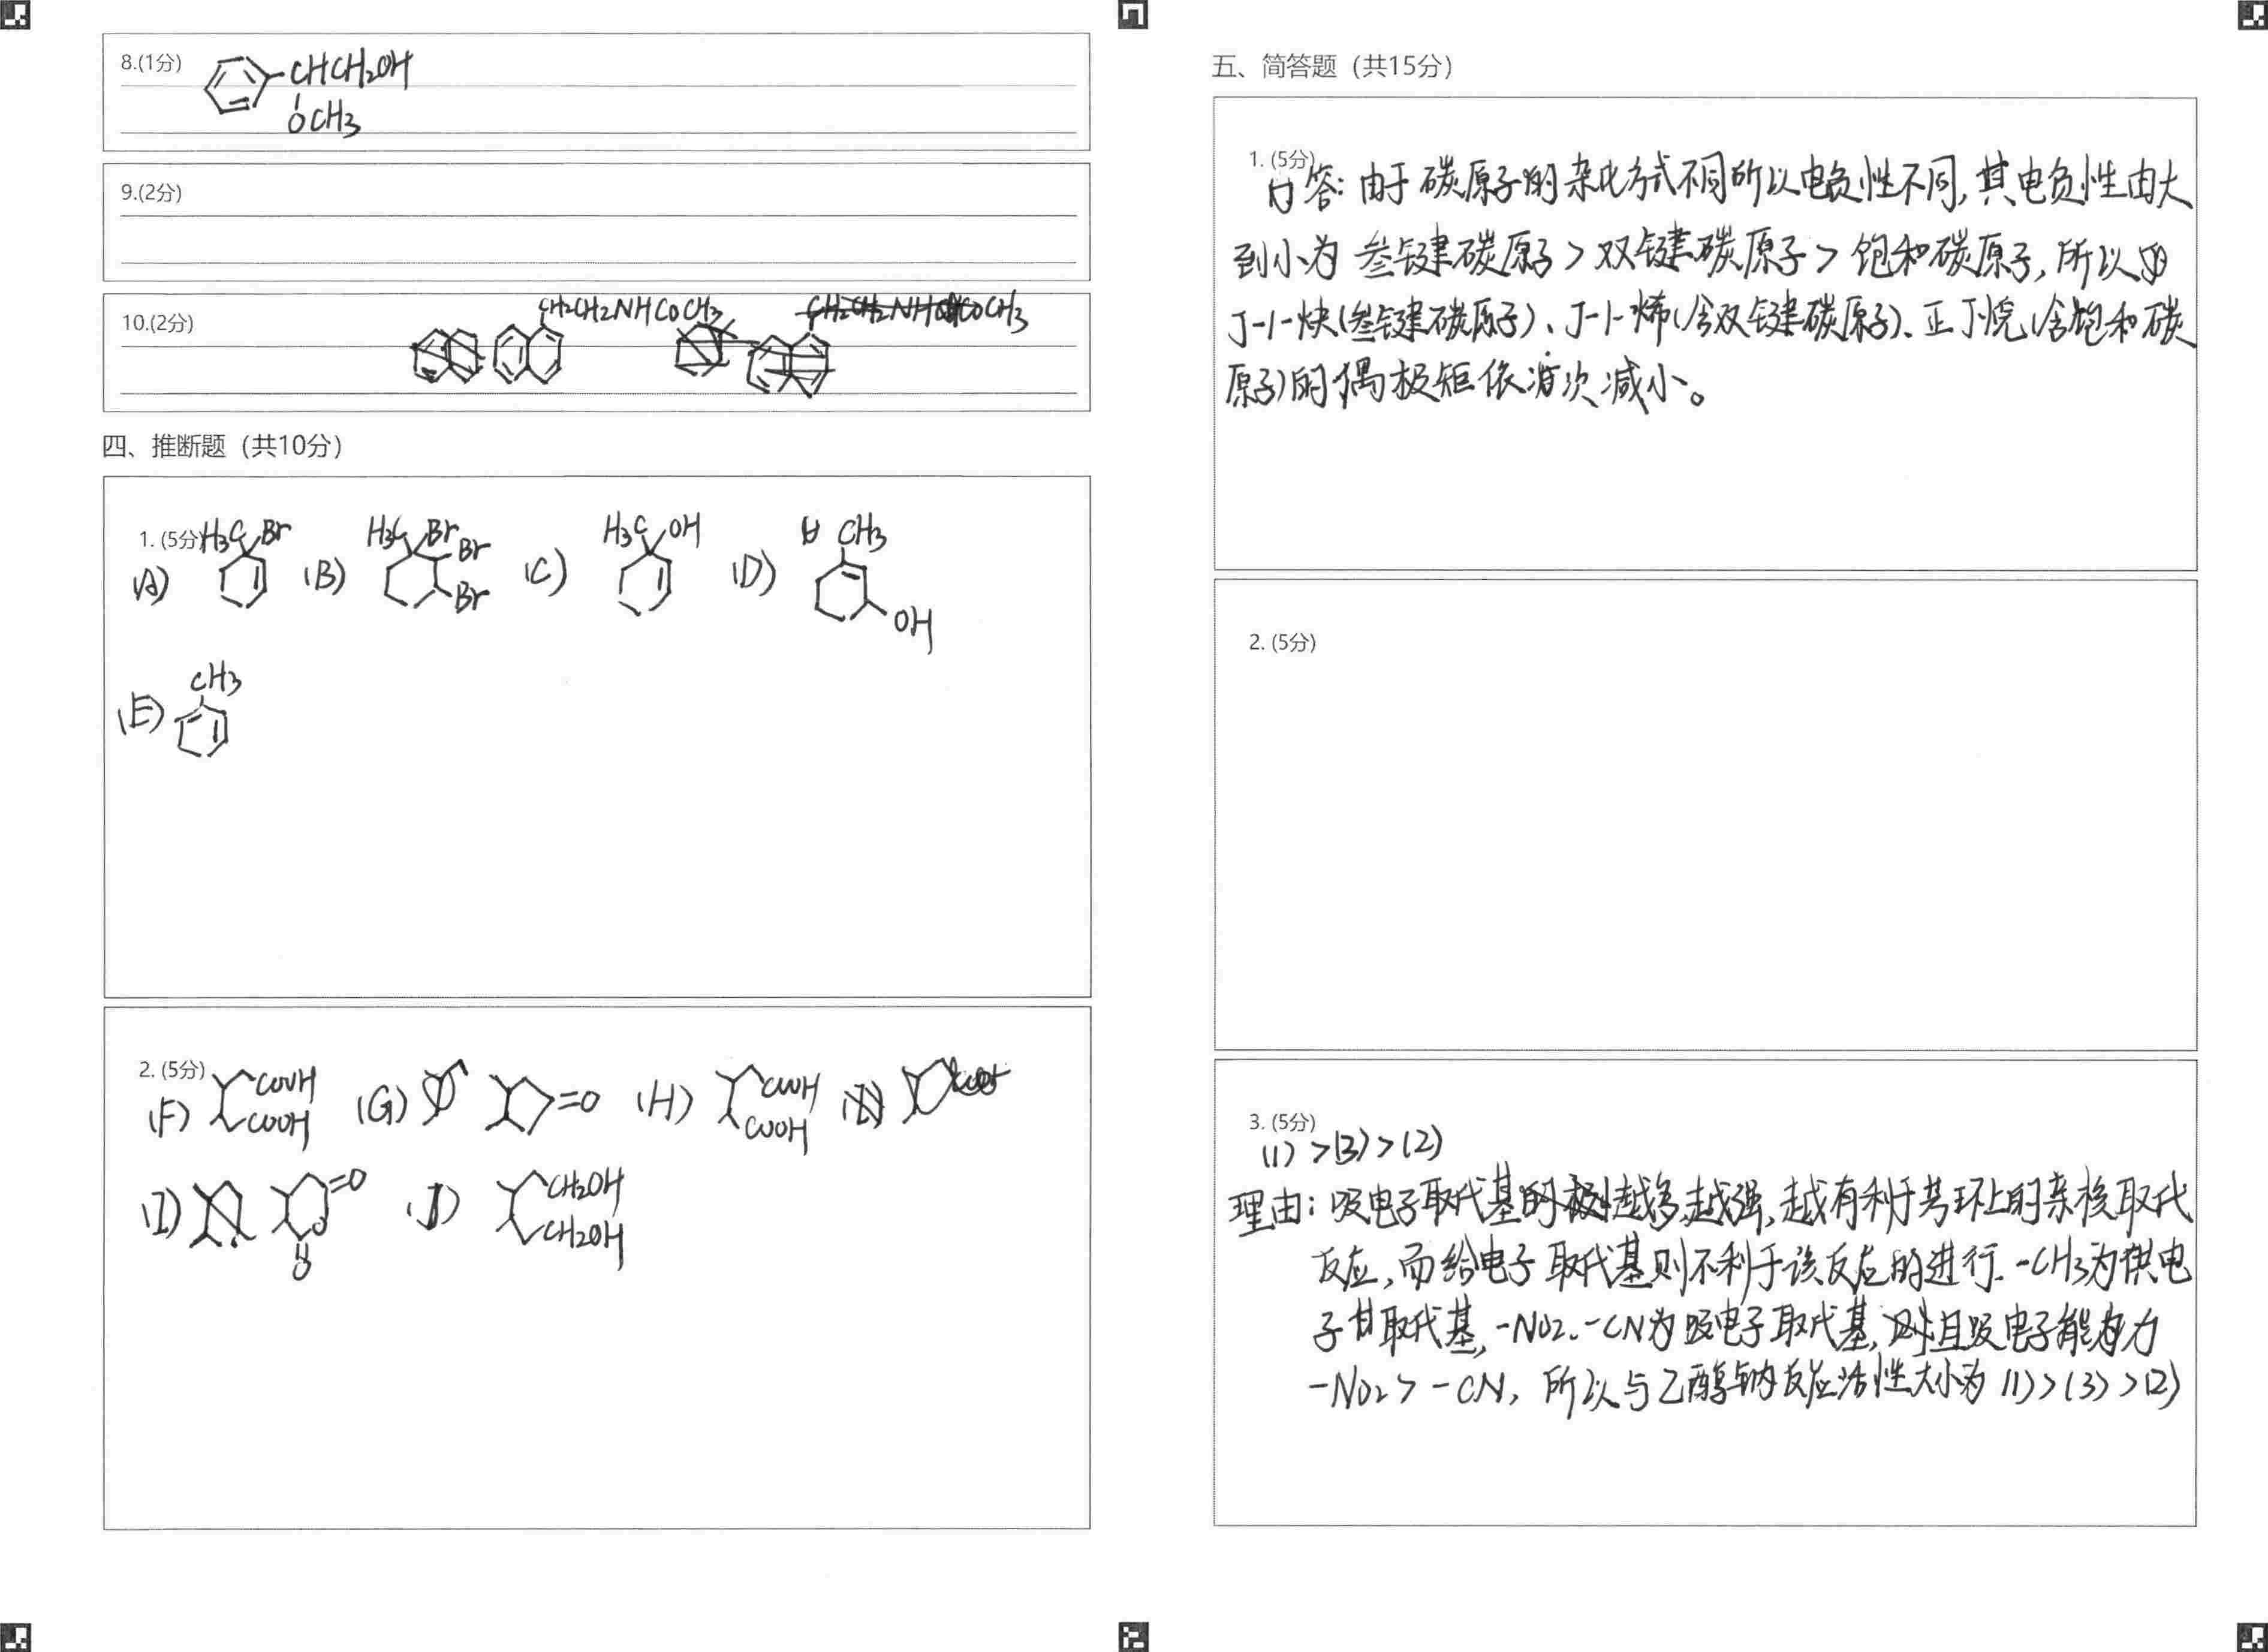 8.(1分)
CHCH₂OH
OCH₃
9.(2分)
10.(2分)
CH₂CH₂NHCOCH₃
四、推断题（共10分）
1. (5分)
H₃C Br
(A)
H₃C Br
Br
Br
(B)
H₃C OH
(C)
CH₃
(D)
OH
CH₃
(E)
2. (5分)
(F)
COOH
COOH
(G)
=O
(H)
COOH
COOH
(I)
=O
O
O
(J)
CH₂OH
CH₂OH
五、简答题（共15分）
1. (5分)
答：由于碳原子的杂化方式不同所以电负性不同，其电负性由大
到小为 叁键碳原子 > 双键碳原子 > 饱和碳原子，所以
丁-1-炔(叁键碳原子)、丁-1-烯(含双键碳原子)、正丁烷(含饱和碳
原子)的偶极矩依次减小。
2. (5分)
3. (5分)
(1) >(3) >(2)
理由：吸电子取代基的越多越强，越有利于芳环上的亲核取代
反应，而给电子取代基则不利于该反应的进行. -CH₃为供电
子取代基，-NO₂、-CN为吸电子取代基，且吸电子能力
-NO₂ > -CN，所以与乙醇钠反应活性大小为 (1) >(3) >(2)